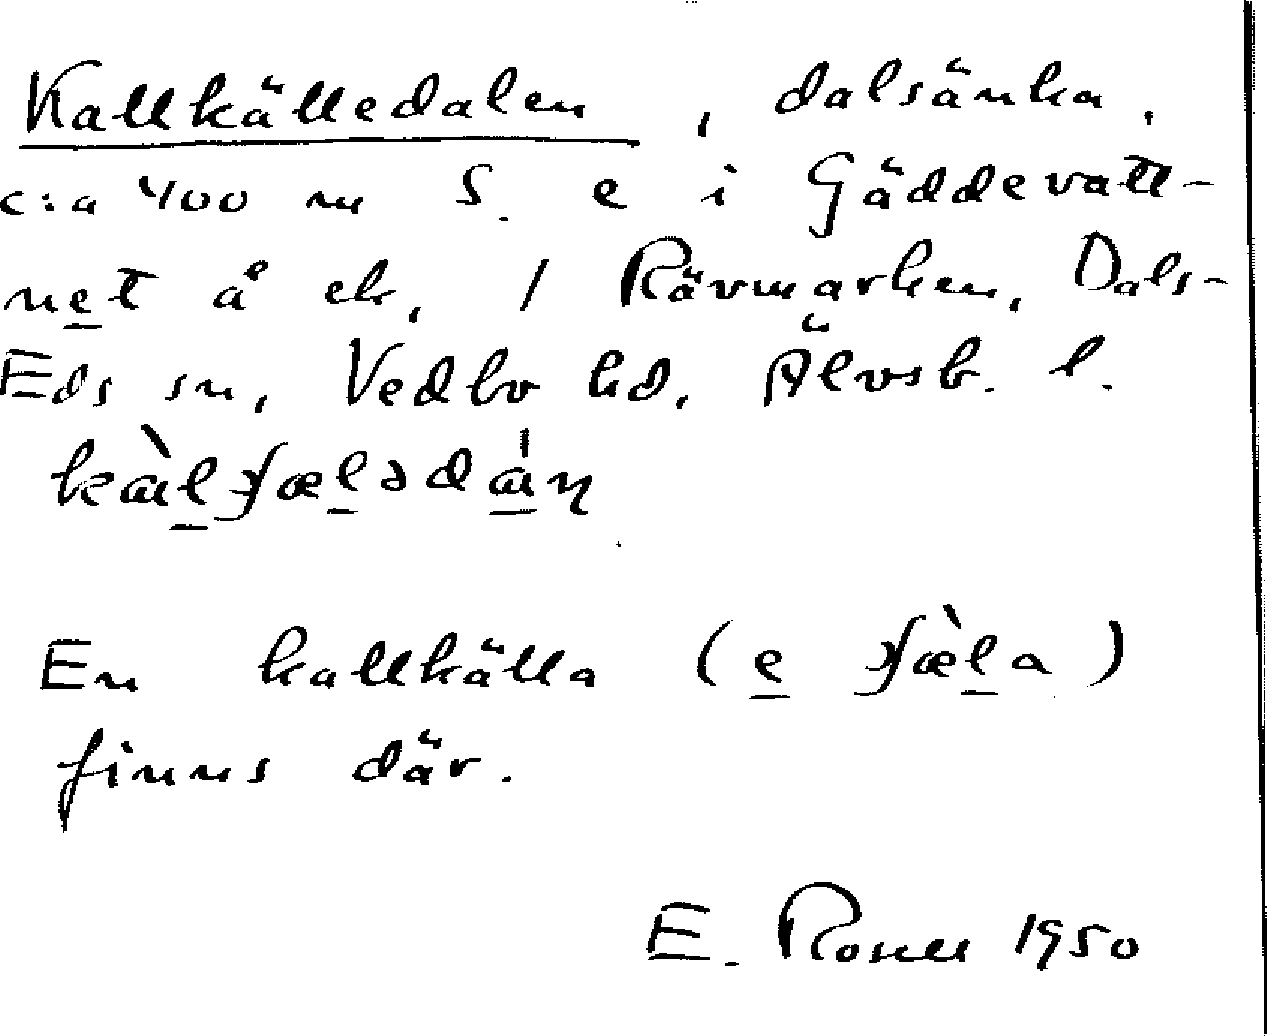 Kallkälledalen, dalsänka,
c:a 400 m S. e i Gäddevatt-
net å ek, 1 Rävmarken, Dals-
Eds sn, Vedbo hd, Älvsb. l.
En kallkälla (
finns där.
E. Rosell 1950